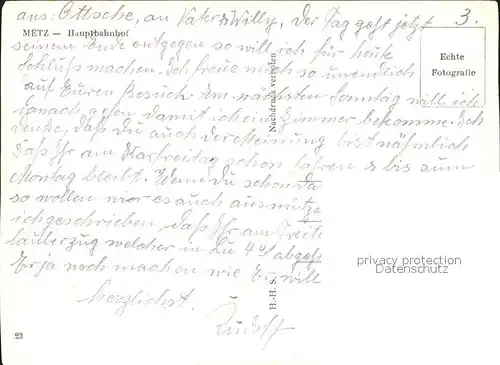 aus: Ottsche, an Vater & Willy, Der Tag geht jetzt
3.
METZ — Hauptbahnhof
seinem Ende entgegen so will ich für heute
Schluss machen. Ich freue mich so unendlich
auf Euren Besuch. Am nächsten Sonntag will ich
danach gehen damit ich ein Zimmer bekomme. Ich
denke, daß du auch der Meinung bist nähmlich
daß Ihr am Karfreitag schon fahren & bis zum
Montag bleibt. Wenn du schon da
so wollen wir es auch ausnütze
ich geschrieben, daß Ihr am Freit
welcher in Lu 4 abgeh
Er ja noch machen wie Er will
Herzlichst.
Rudolf
Echte
Fotografie
Nachdruck verboten
H.-H. S.
23
privacy protection
Datenschutz